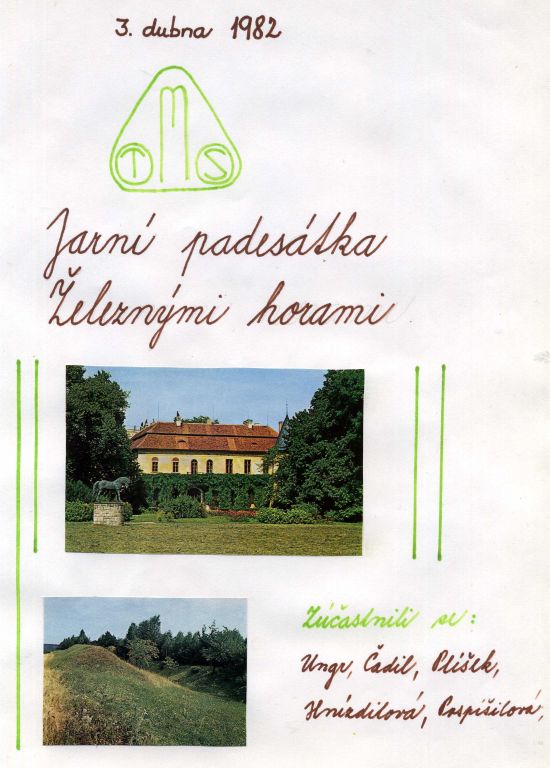 3. dubna 1982
TMS
Jarní padesátka
Železnými horami
Zúčastnili se:
Ungr, Čadil, Plíšek,
Hnízdilová, Pospíšilová,